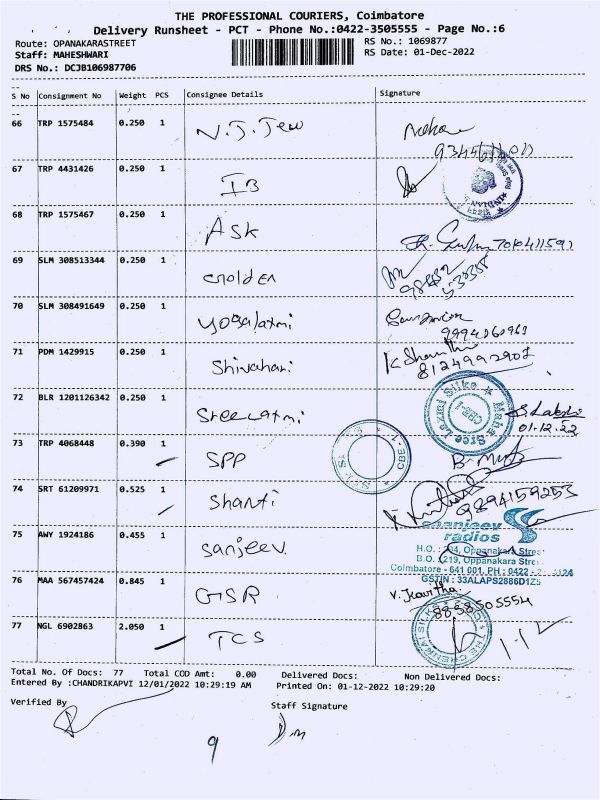 THE PROFESSIONAL COURIERS, Coimbatore
Delivery Runsheet - PCT - Phone No.:0422-3505555 - Page No.:6
Route: OPANAKARASTREET
RS No.: 1069877
Staff: MAHESHWARI
RS Date: 01-Dec-2022
DRS No.: DCJB106987706
S No Consignment No Weight PCS Consignee Details Signature
66 TRP 1575484 0.250 1 N.J.Jew
67 TRP 4431426 0.250 1 IB
68 TRP 1575467 0.250 1 ASK 7010411591
69 SLM 308513344 0.250 1 Golden
70 SLM 308491649 0.250 1 yogalaxmi
9994060963
71 PDM 1429915 0.250 1 Shivahari K Shanthi
8124992907
72 BLR 1201126342 0.250 1 Sreelaxmi
Maha Sree Laxmi Silks
01.12.22
73 TRP 4068448 0.390 1 SPP
74 SRT 61209971 0.525 1 Shanti
9894159253
75 AWY 1924186 0.455 1 Sanjeev
Sanjeev
radios
H.O. : Oppanakara Street
B.O. 219, Oppanakara Street
Coimbatore - 641 001. PH : 0422 -
GSTIN : 33ALAPS2886D1Z5
76 MAA 567457424 0.845 1 GSR V. Kavitha
8858505554
77 NGL 6902863 2.050 1 TCS
Total No. Of Docs: 77 Total COD Amt: 0.00 Delivered Docs: Non Delivered Docs:
Entered By :CHANDRIKAPVI 12/01/2022 10:29:19 AM Printed On: 01-12-2022 10:29:20
Verified By
Staff Signature
9